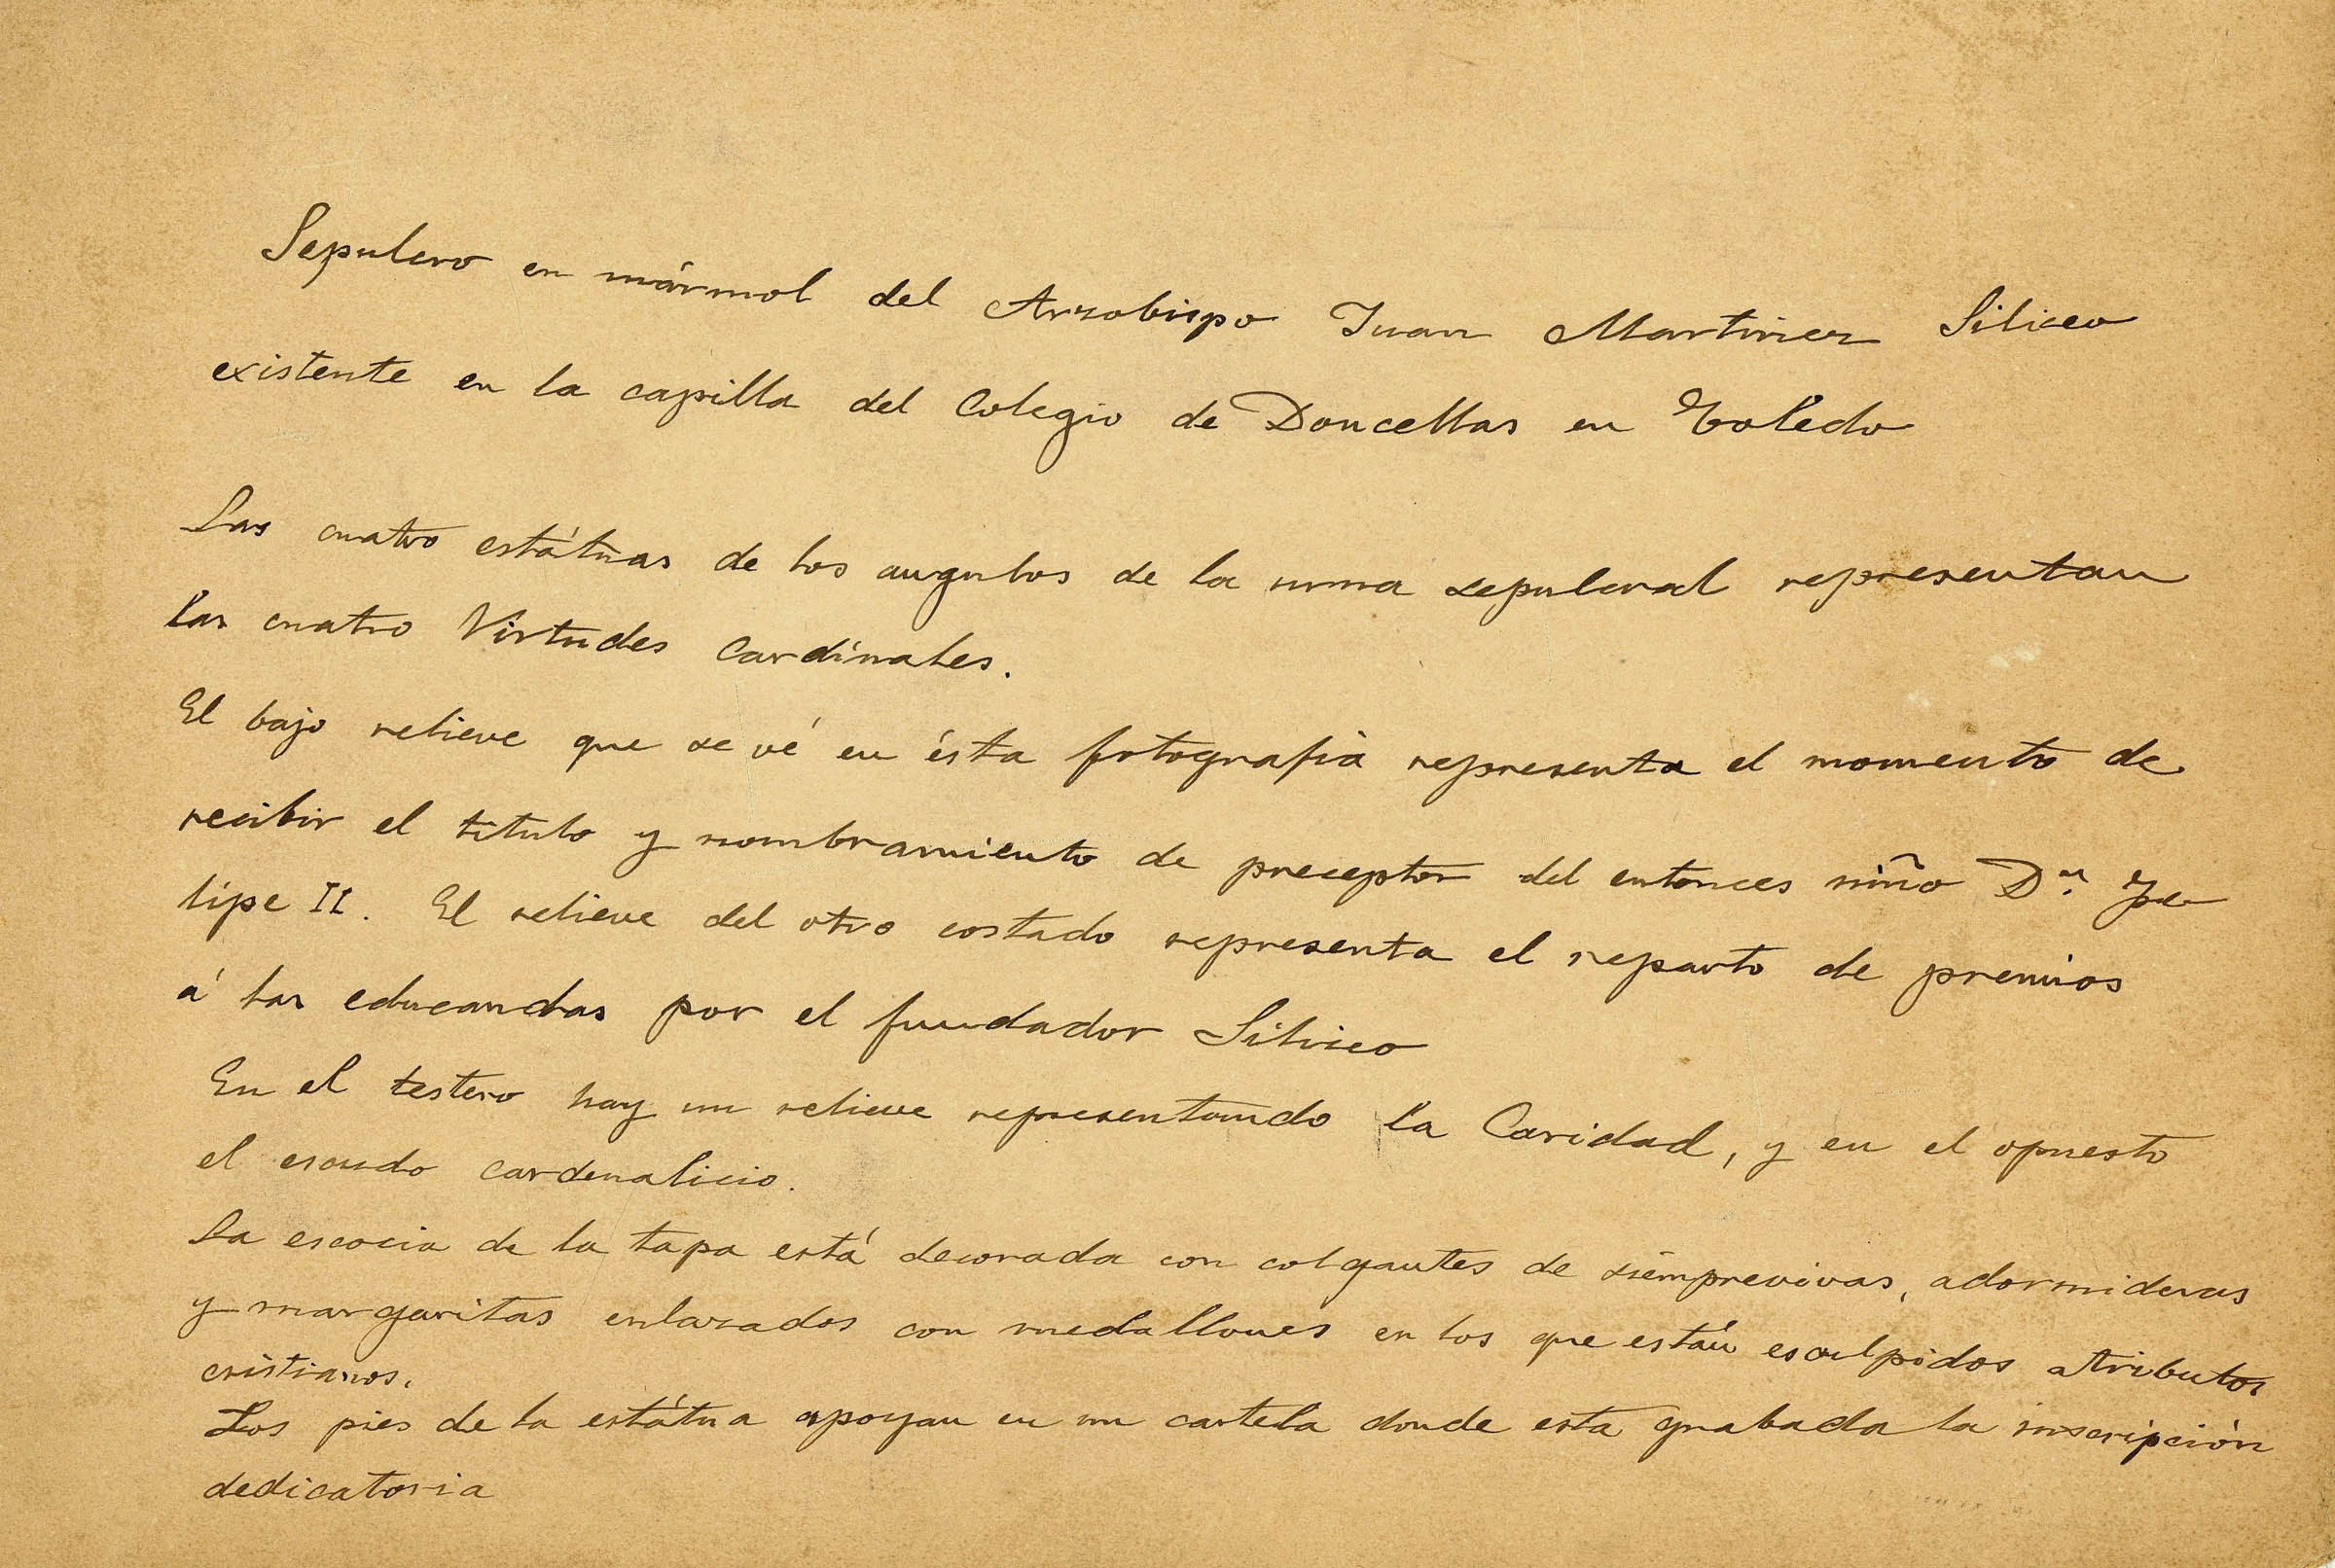 Sepulcro en mármol del Arzobispo Juan Martinez Siliceo
existente en la capilla del Colegio de Doncellas en Toledo
Las cuatro estátuas de los angulos de la urna sepulcral representan
las cuatro Virtudes Cardinales.
El bajo relieve que se vé en ésta fotografia representa el momento de
recibir el titulo y nombramiento de preceptor del entonces niño Dn. Fe
lipe II. El relieve del otro costado representa el reparto de premios
á las educandas por el fundador Siliceo
En el testero hay un relieve representando la Caridad, y en el opuesto
el escudo cardenalicio.
La escocia de la tapa está decorada con colgantes de siemprevivas, adormideras
y margaritas enlazados con medallones en los que están esculpidos atributos
cristianos.
Los pies de la estátua apoyan en un cartela donde esta grabada la inscripción
dedicatoria